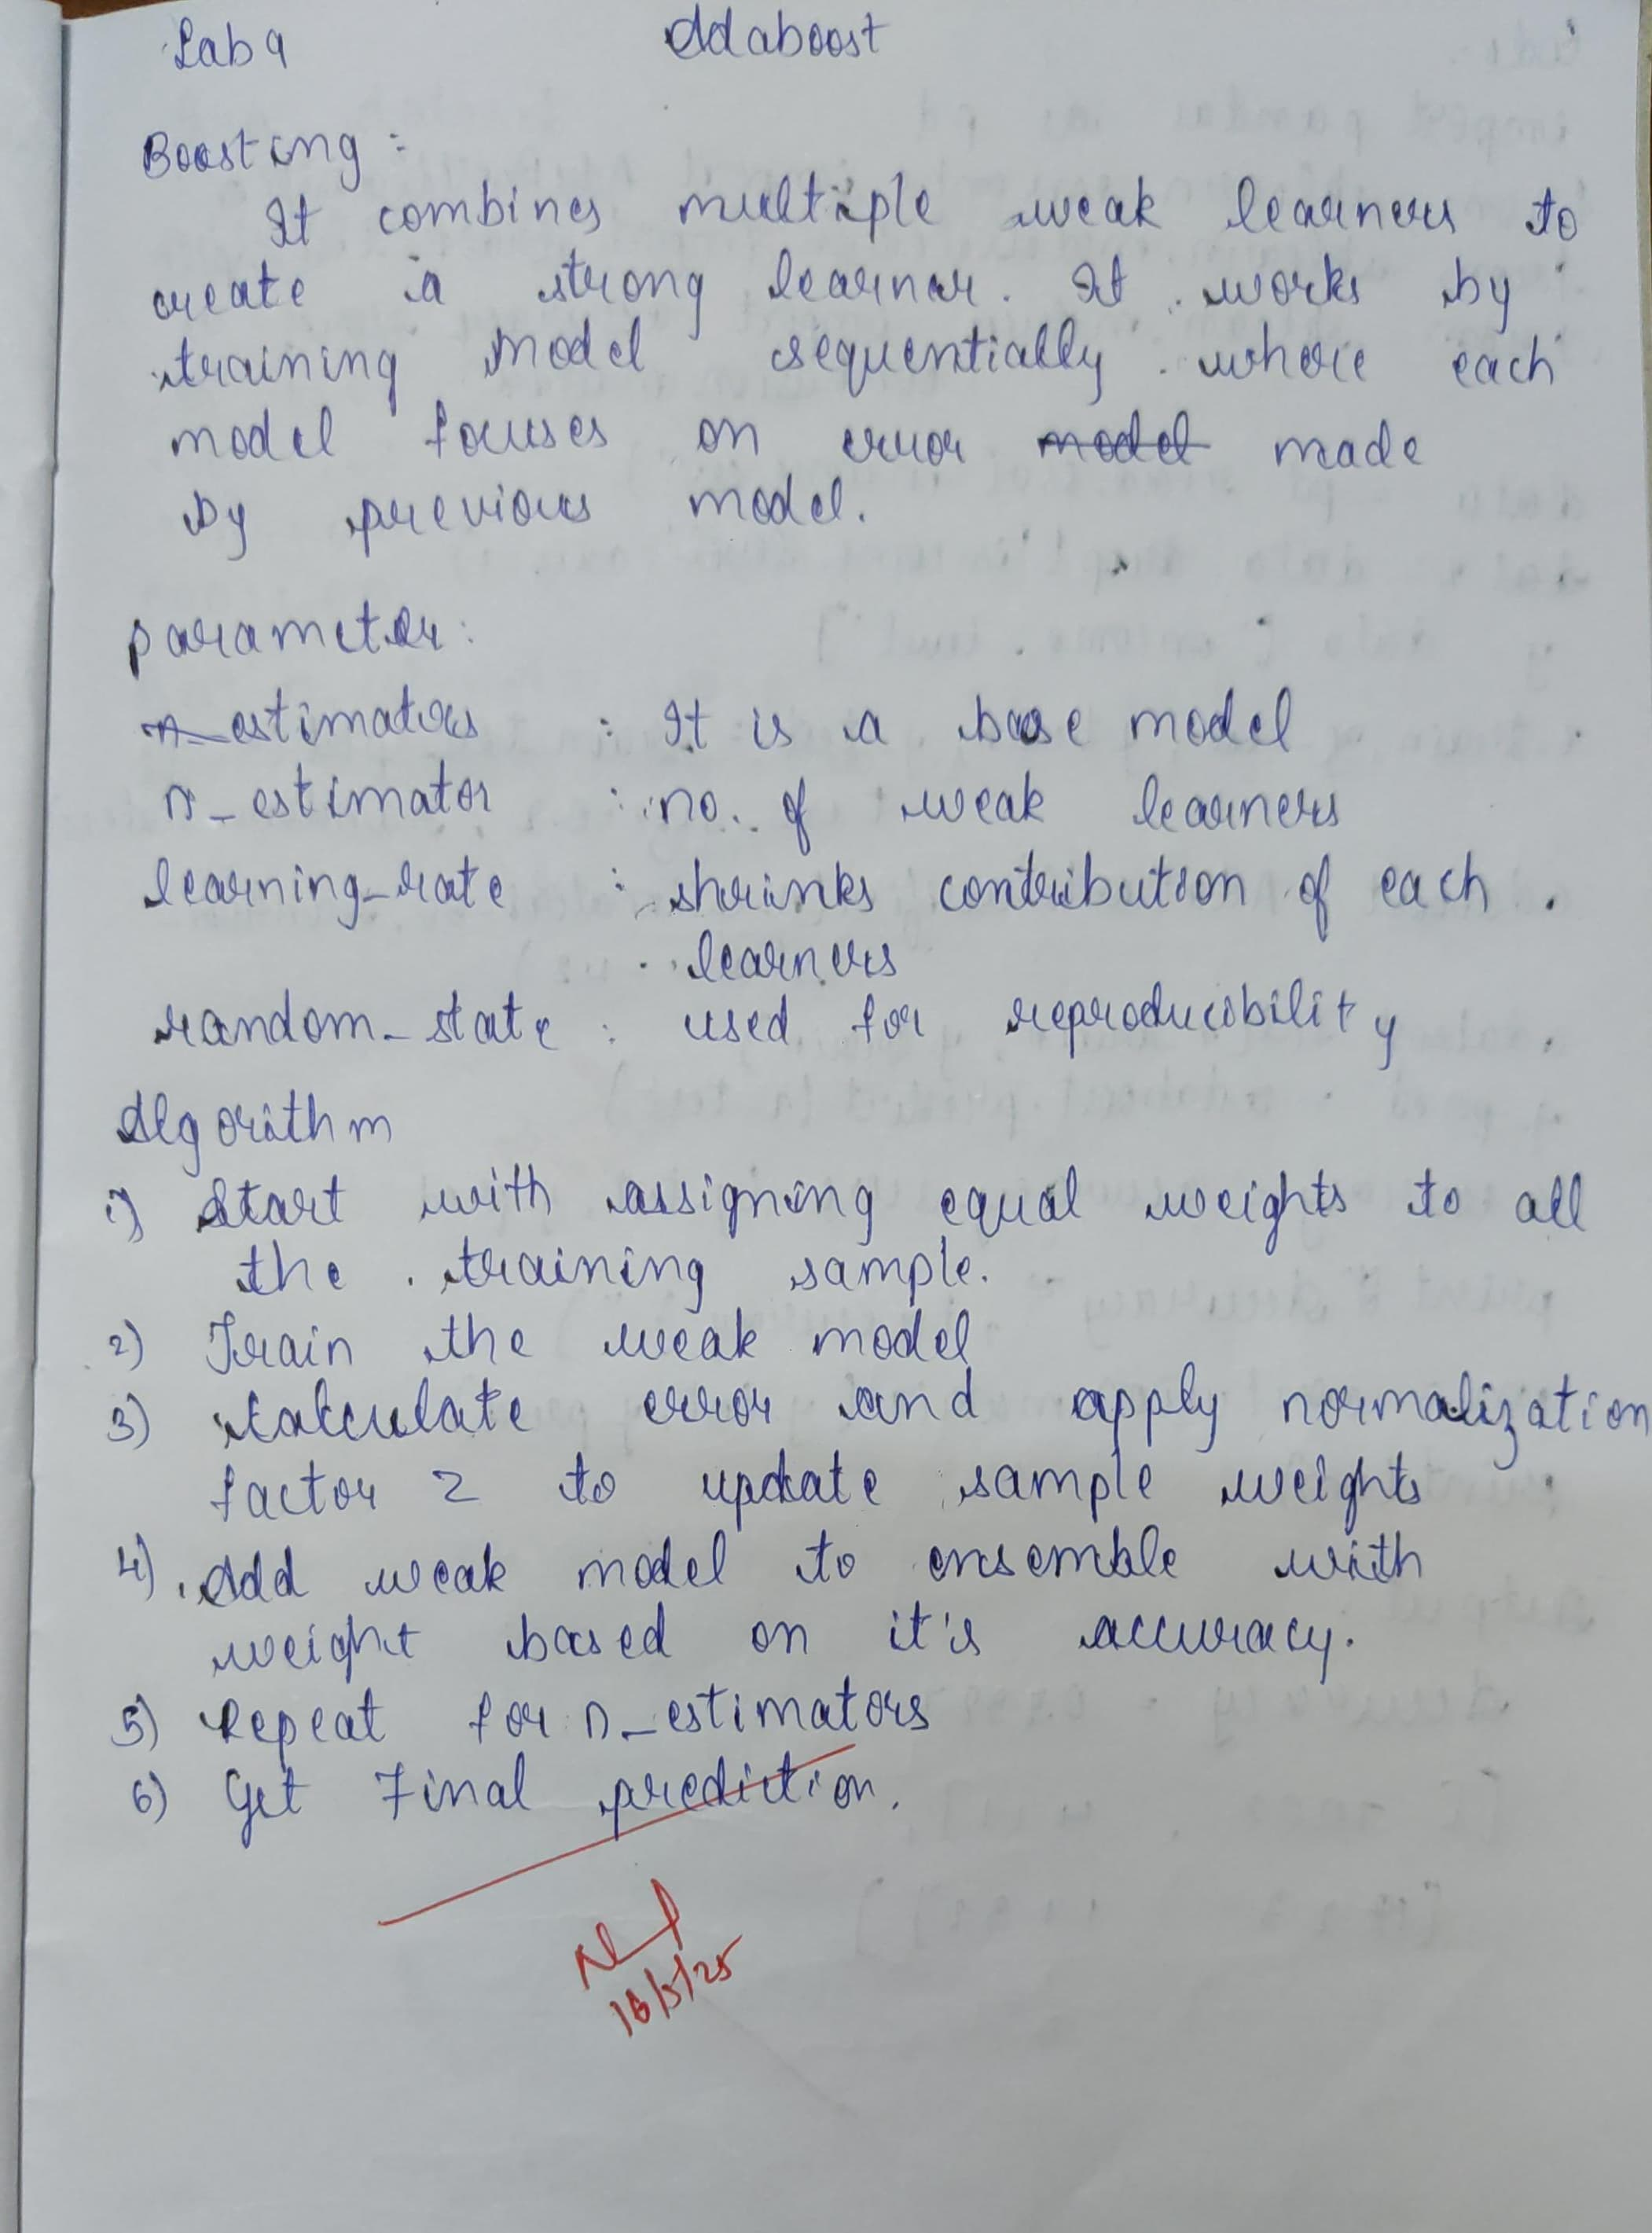 Lab 9 Adaboost
Boosting :
It combines multiple weak learners to
create a strong learner. It works by
training model sequentially where each
model focuses on error model made
by previous model.
parameter:
n_estimators : It is a base model
n_estimator : no. of weak learners
learning_rate : shrinks contribution of each
learners
random_state : used for reproducibility
Algorithm
1) Start with assigning equal weights to all
the training sample.
2) Train the weak model
3) Calculate error and apply normalization
factor z to update sample weights
4) Add weak model to ensemble with
weight based on it's accuracy.
5) Repeat for n_estimators
6) Get Final prediction.
16/5/25